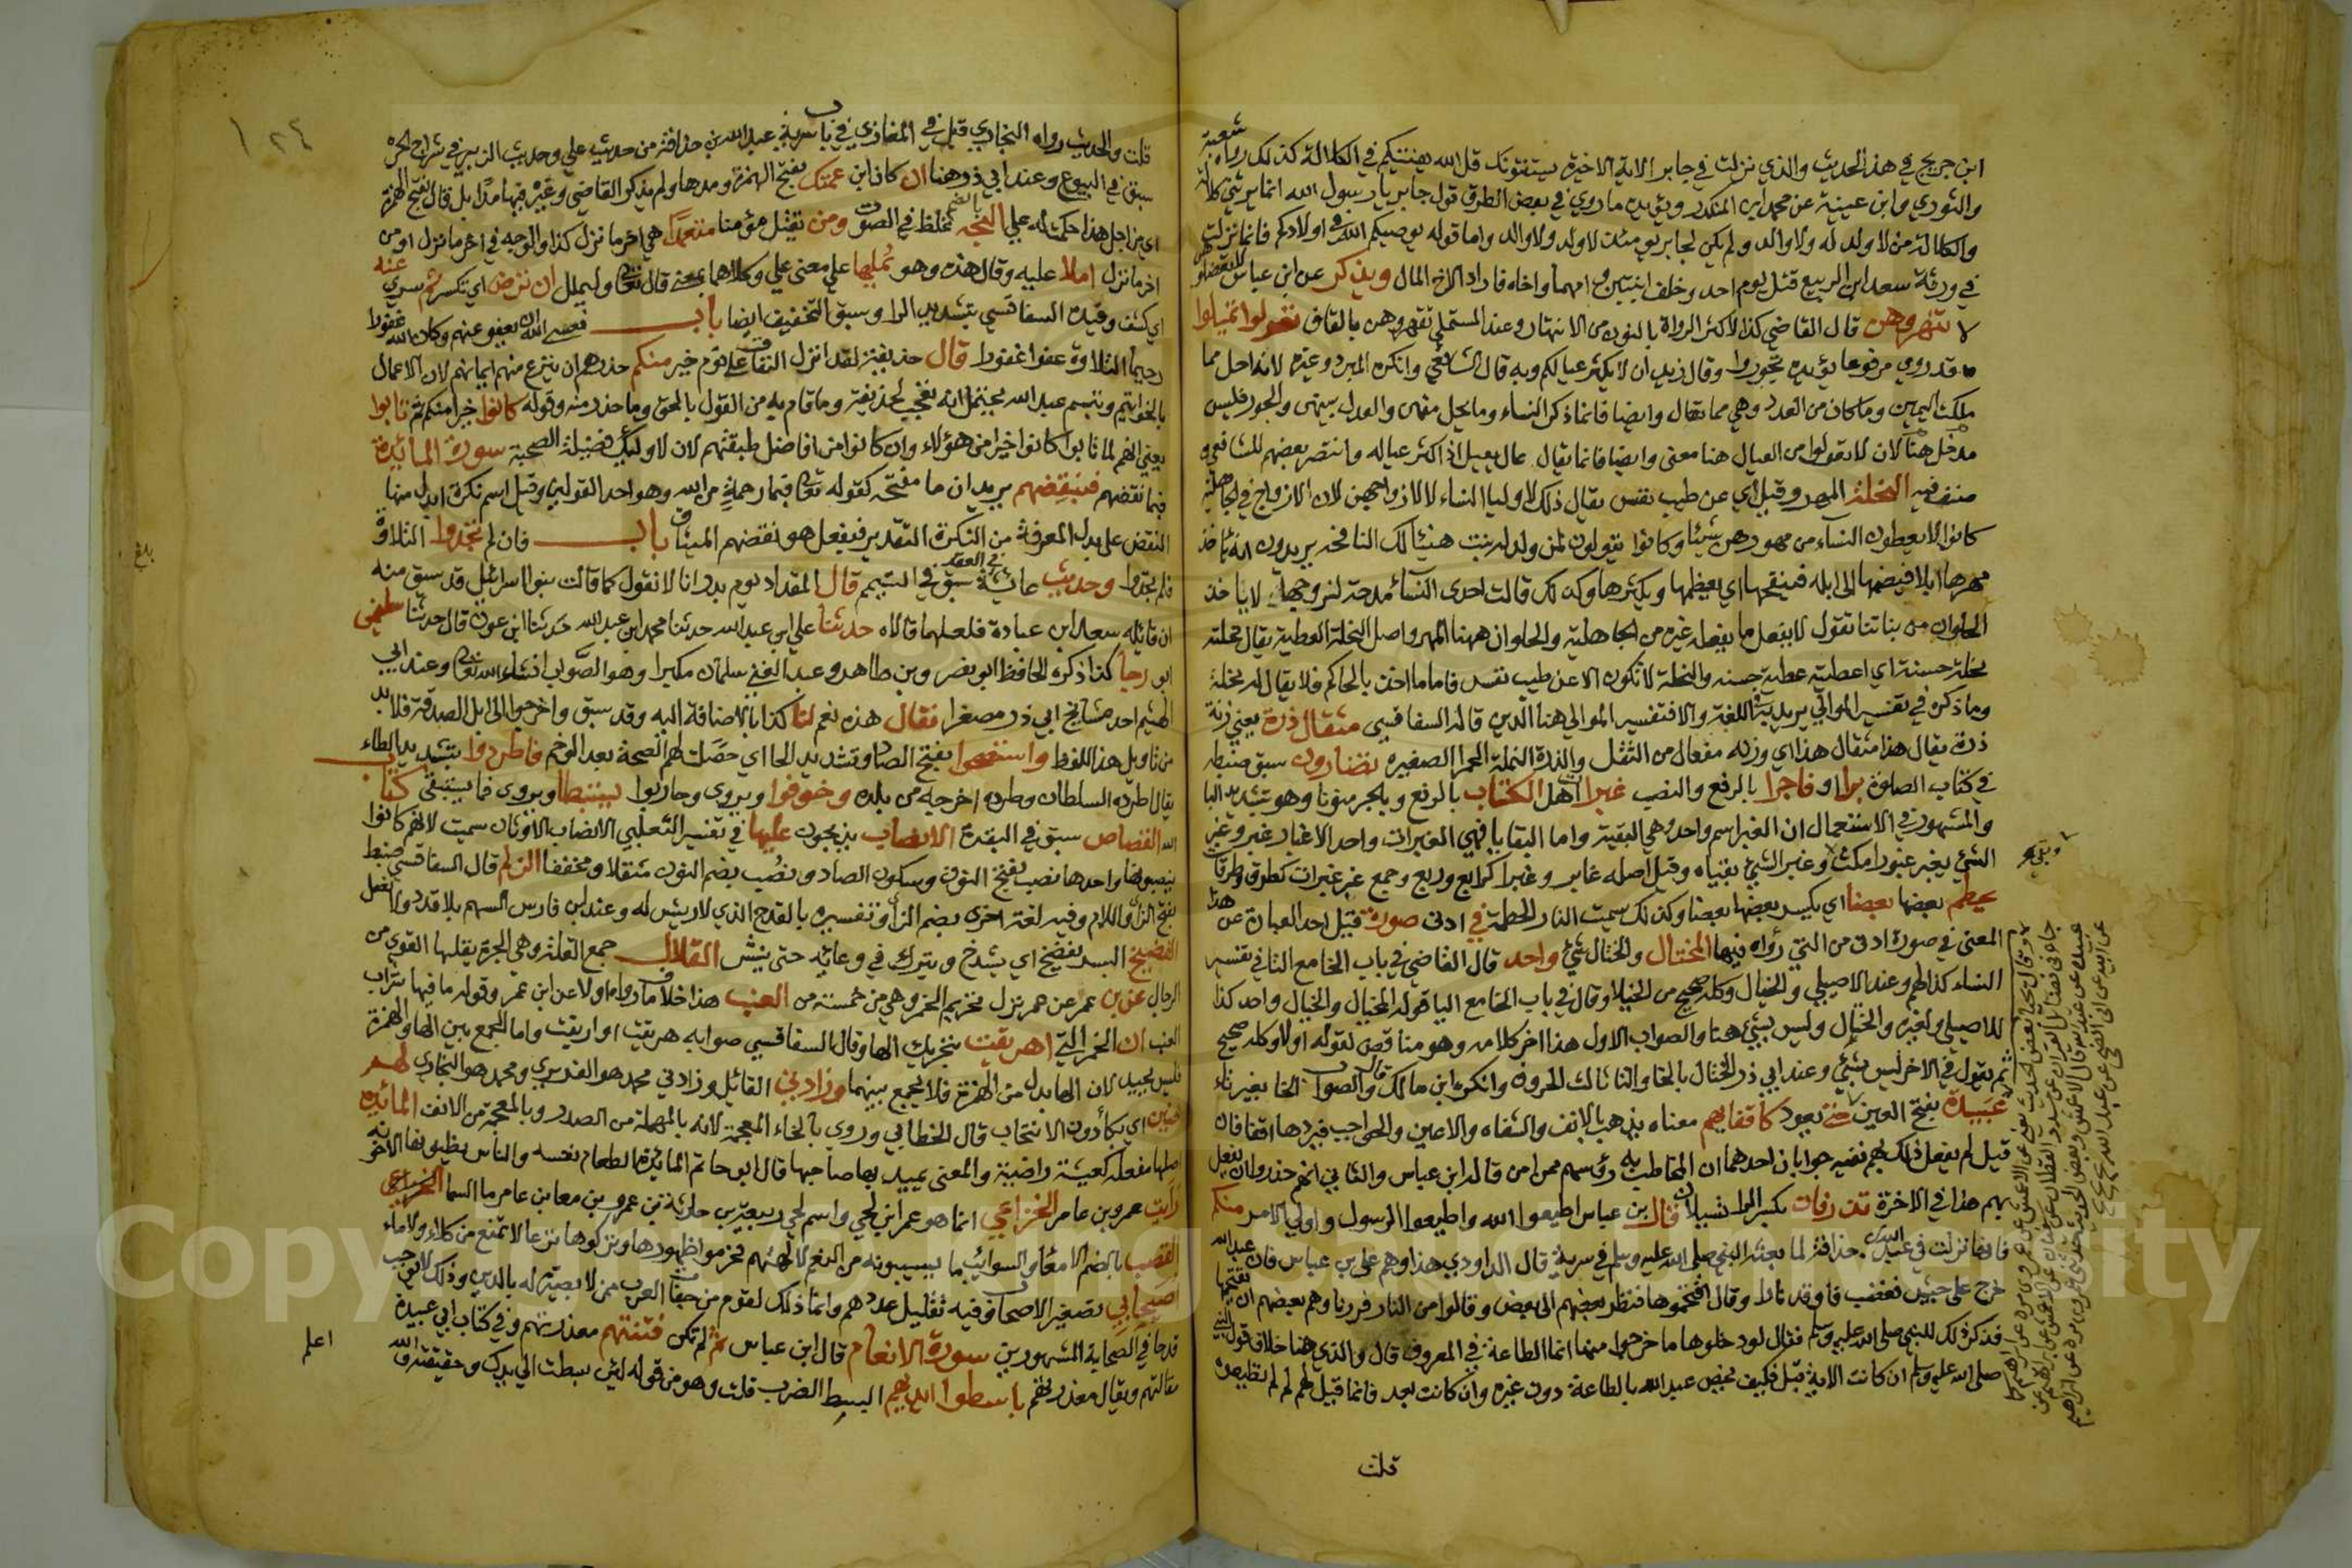 ابن جريج في هذا الحديث والذي نزلت في جابر الاية الاخيرة يستفتونك قل الله يفتيكم في الكلالة كذلك رواه شعبة
والثوري وابن عيينة عن محمد ابن المنكدر ويؤيده ما روي في بعض الطرق قول جابر يا رسول الله انما يرثني كلالة
والكلالة من لا ولد له ولا والد ولم يكن لجابر يومئذ لا ولد ولا والد واما قوله يوصيكم الله في اولادكم فانما نزلت
في ورثة سعد ابن الربيع قتل يوم احد وخلف ابنتين وامهما واخاه فاراد الاخ المال ويذكر عن ابن عباس لا تعضلوهن
لا تنهروهن قال القاضي كذا لاكثر الرواة بالنون من الانتهار وعند المستملي تقهروهن بالقاف تعولوا تميلوا
قد روي مرفوعا يؤيده تجوروا وقال زيد ان لا يكثر عيالكم وبه قال الشافعي وانكره المبرد وغيره لانه احل مما
ملكت اليمين وما كان من العدد وهي مما تقال وايضا فانما ذكر النساء وما يحل منهن والعدل بينهن والجور فليس
مدخل هنا لان لا تعولوا من العيال هنا معنى وايضا فانما يقال عال يعيل اذا كثر عياله وانتصر بعضهم للشافعي
صنف فيه النحلة المهر وقيل اي عن طيب نفس يقال ذلك لاوليا النساء لا لازواجهن لان الازواج في الجاهلية
كانوا لا يعطون النساء من مهورهن شيئا وكانوا يقولون لمن ولد له بنت هنيئا لك النافخه يريدون انه ياخذ
مهرها ابلا فيضمها الى ابله فينفجها اي يعظمها ويكثرها وكذلك قالت احدى النساء مدحة لزوجها لا ياخذ
الحلوان من بناتنا تقول لا يفعل ما يفعله غيره من الجاهلية والحلوان ههنا المهر واصل النحلة العطية يقال نحلته
نحلة حسنة اي اعطيته عطية حسنه والنحلة لا تكون الا عن طيب نفس فاما ما اخذ بالحاكم فلا يقال له نحلة
وما ذكره في تفسير الموالي يريد في اللغة والا فتفسير الموالي هنا الذين قاله السفاقسي مثقال ذرة يعني زنة
ذرة يقال هذا مثقال هذا اي وزنه مفعال من الثقل والذرة النملة الحمرا الصغيره تضارون سبق ضبطه
في كتاب الصلوة برا او فاجرا بالرفع والنصب غبرات اهل الكتاب بالرفع وبالجر منونا وهو تشديد البا
والمشهور في الاستعمال ان الغبر اسم واحد وهي البقية واما البقايا فهي الغبرات واحد الاغبار غبر وغبر
الشيئ يغبر غبورا مكث وغبر الشيئ بقيتاه وقيل اصله غابر وغبرا كرابع وربع وجمع غبر غبرات كطرق وطرقات
يحطم بعضها بعضا اي يكسر بعضها بعضا وكذلك سميت النار الحطمة في ادنى صورة قيل احد العبارة عن هذا
المعنى في صورة ادنى من التي رأوه فيها المختال والختال شيئ واحد قال القاضي في باب الخا مع التا في تفسير
النساء كذا لهم وعند الاصيلي والخيال وكله صحيح من الخيلا وقال في باب الخا مع اليا قوله المخيال والخيال واحد كذا
للاصيلي ولغيره والختال وليس بشيئ هنا والصواب الاول هذا اخر كلامه وهو مناقض لقوله اولا وكله صحيح
ثم يقول في الاخر ليس بشيئ وعند ابي ذر الختال بالخا والتا ثالث الحروف وانكره ابن مالك وقال والصواب الخا بغير تاء
عبيدة بفتح العين حتى يعود كاقفايهم معناه يذهب بالانف والشفاه والاعين والحواجب فيردها اقفا فان
قيل لم يفعل ذلك بهم ففيه جوابان احدهما ان المخاطب به رؤسهم ممن امن قاله ابن عباس والثاني انهم حذروا ان يفعل
بهم هذا في الاخرة تذرفان بكسر الرا تسيلان قال ابن عباس اطيعوا الله واطيعوا الرسول واولي الامر منكم
فانما نزلت في عبد الله بن حذافة لما بعثه النبي صلى الله عليه وسلم في سرية قال الداودي هذا وهم على بن عباس فان عبدالله
خرج على جيش فغضب فاوقد نارا وقال اقتحموها فنظر بعضهم الى بعض وقالوا من النار فررنا وهم بعضهم ان يقتحمها
فذكر ذلك للنبي صلى الله عليه وسلم فقال لو دخلوها ما خرجوا منها انما الطاعة في المعروف قال والذي هنا خلاف قول النبي
صلى الله عليه وسلم ان كانت الاية قبل فكيف يخص عبد الله بالطاعة دون غيره وان كانت بعد فانما قيل لهم لم لم تطيعوه
قلت
قلت والحديث رواه البخاري قبل في المغازي في باب سرية عبد الله بن حذافة من حديث علي وحديث الزبير في شراج الحرة
سبق في البيوع وعند ابي ذر هنا ان كان ابن عمتك بفتح الهمزة ومدها ولم يذكر القاضي وغيره فيها مدا بل قال بفتح الهمزة
اي من اجل هذا حكمت له علي البحه بالضم غلظ في الصوت ومن يقتل مؤمنا متعمدا هي اخر ما نزل كذا والوجه في اخر ما نزل او من
اخر ما نزل املا عليه وقال هذه وهو يمليها علي معنى علي وكلاهما بمعنى قال تعالى وليملل ان ترض اي تكسر ثم سري عنه
اي كشف وقيده السفاقسي بتشديد الرا وسبق التخفيف ايضا باب فعسى الله ان يعفو عنهم وكان الله غفورا
رحيما التلاوة عفوا غفورا قال حذيفة لقد انزل النفاق على قوم خير منكم حذرهم ان ينزع منهم ايمانهم لان الاعمال
بالخواتيم وتبسم عبد الله يحتمل انه تعجب لحذيفة وما قام به من القول بالحق وما حذر منه وقوله كانوا خيرا منكم ثم تابوا
يعني انهم لما تابوا كانوا خيرا من هؤلاء وان كانوا من افاضل طبقتهم لان لاوليك فضيلة الصحبة سورة المائدة
فبما نقضهم فبنقضهم يريد ان ما مقحمة كقوله تعالى فبما رحمة من الله وهو احد القولين وقيل اسم نكرة ابدل منها
النقض على بدل المعرفة من النكرة التقدير فبفعل هو نقضهم الميثاق باب فان لم تجدوا التلاوة
فلم تجدوا وحديث عائشة في العقد سبق في التيمم قال المقداد يوم بدر انا لا نقول كما قالت بنوا اسرائيل قد سبق منه
ان قايله سعد ابن عبادة فلعلهما قالاه حدثنا علي ابن عبد الله حدثنا محمد ابن عبد الله حدثنا ابن عون قال حدثنا سلمي
ابو رجا كذا ذكره الحافظ ابو نصر وبن طاهر وعبد الغني سلمان مكبرا وهو الصواب انشاء الله تعالى وعند ابي
الهيثم احد مشايخ ابي ذر مصغرا فقال هذه نعم لنا كذا بالاضافة اليه وقد سبق واخرجوا الى ابل الصدقة فلا بد
من تاويل هذا اللفظ واستصحوا بفتح الصاد وتشديد الحا اي حصلت لهم الصحة بعد الوخم فاطردوا بتشديد الطاء
يقال اطرده السلطان وطرده اخرجه من بلده وخوفوا ويروى وحاربوا يستبطا ويروى فما يستبقى كتاب
الله القصاص سبق في البقرة الانصاب يذبحون عليها في تفسير الثعلبي الانصاب الاوثان سميت لانهم كانوا
ينصبونها واحدها نصب بفتح النون وسكون الصاد ونصب بضم النون مثقلا ومخففا الزلم قال السفاقسي ضبط
بفتح الزاء واللام وفيه لغة اخرى بضم الزاء وتفسيره بالقدح الذي لا ريش له وعند ابن فارس السهم بلا قدد ولا نصل
الفضيخ البسر يفضخ اي يشدخ ويترك في وعائه حتى ينش القلال جمع القلة وهي الجرة يقلها القوي من
الرجال عن بن عمر عن عمر نزل تحريم الخمر وهي من خمسة من العنب هذا خلاف ما رواه اولا عن ابن عمر وقوله ما فيها شراب
العنب ان الخمر التي اهريقت بتحريك الها وقال السفاقسي صوابه هريقت او اريقت واما الجمع بين الها والهمزة
فليس بجيد لان الها بدل من الهمزة فلا يجمع بينهما وزادني القائل وزادني محمد هو الفربري ومحمد هو البخاري لهم
خنين اي بكاء دون الانتحاب قال الخطابي وروي بالخاء المعجمة لانه بالمهملة من الصدر وبالمعجمة من الانف المائده
اصلها مفعلة كعيشة راضية والمعنى يميد بها صاحبها قال ابو حاتم المائدة الطعام نفسه والناس يظنونها الاخونه
رايت عمرو بن عامر الخزاعي انما هو عمر ابن لحي واسم لحي ربيعة بن حارثة بن عمرو بن معا بن عامر ما السما الخزاعي
القصب بالضم الامعاء والسوائب ما يسيبونه من النعم لالهتهم فحرموا ظهورها وتركوها ترعا لا تمنع من كلاء ولا ماء
اصيحابي تصغير الاصحاب وفيه تقليل عددهم وانما ذلك لقوم من جفاة العرب ممن لا بصيرة له بالدين وذلك لا يوجب
قدحا في الصحابة المشهورين سورة الانعام قال ابن عباس ثم لم تكن فتنتهم معذرتهم وفي كتاب ابي عبيدة
مقالتهم ويقال معذرتهم باسطوا ايديهم البسط الضرب قلت وهو من قوله لئن بسطت الي يدك وحقيقته والله
اعلم